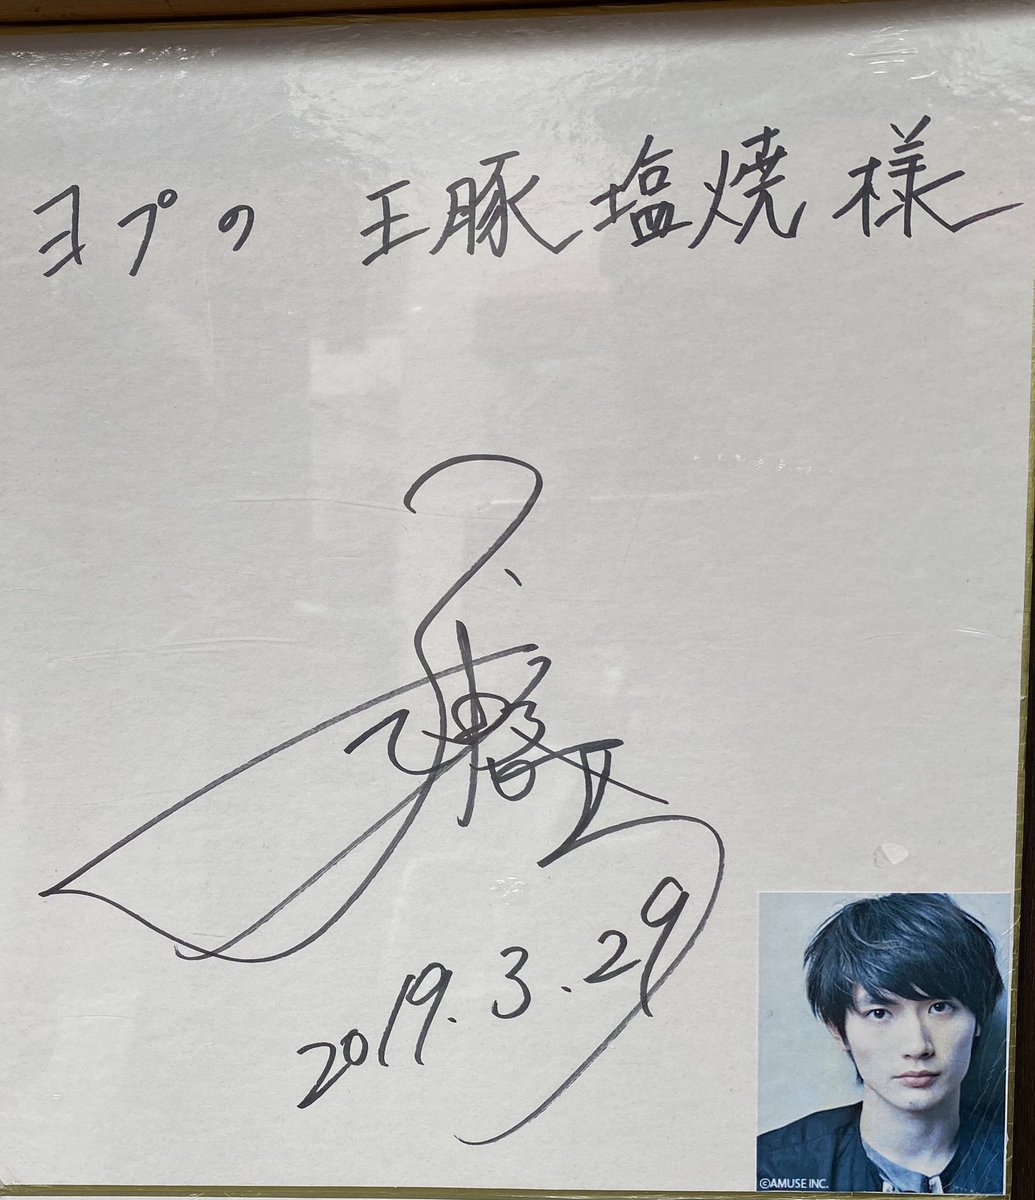 ヨプの 王豚塩焼様
2019.3.29
©AMUSE INC.